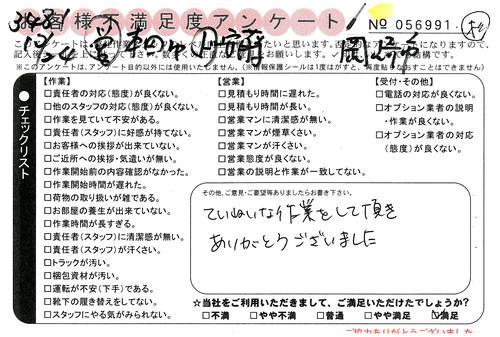 お客様不満足度アンケート
№ 056991
チェックリスト
【作業】
□責任者の対応(態度)が良くない。
□他のスタッフの対応(態度)が良くない。
□作業を見ていて不安がある。
□責任者(スタッフ)に好感が持てない。
□お客様への挨拶が出来ていない。
□ご近所への挨拶・気遣いが無い。
□作業開始前の内容確認がなかった。
□作業開始時間が遅れた。
□荷物の取り扱いが雑である。
□お部屋の養生が出来ていない。
□作業時間が長すぎる。
□責任者(スタッフ)に清潔感が無い。
□責任者(スタッフ)が汗くさい。
□トラックが汚い。
□梱包資材が汚い。
□運転が不安(下手)である。
□靴下の履き替えをしてない。
□スタッフにやる気がみられない。
【営業】
□見積もり時間に遅れた。
□見積もり時間が長い。
□営業マンに清潔感が無い。
□営業マンが煙草くさい。
□営業マンが汗くさい。
□営業態度が良くない。
□営業の説明と作業が一致してない。
【受付・その他】
□電話の対応が良くない。
□オプション業者の説明
・作業が良くない。
□オプション業者の対応
(態度)が良くない。
その他、ご意見・ご要望等ありましたらお書き下さい。
ていねいな作業をして頂き
ありがとうございました
☆当社をご利用いただきまして、ご満足いただけたでしょうか?
□不満 □やや不満 □普通 □やや満足 ☑満足
ご協力ありがとうございました